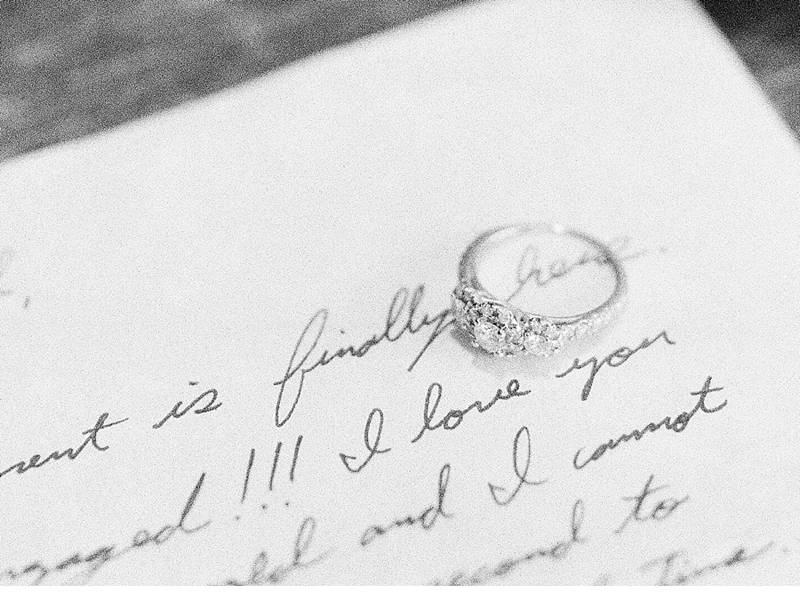 is finally here.
engaged!!! I love you
and I cannot
second to
time.